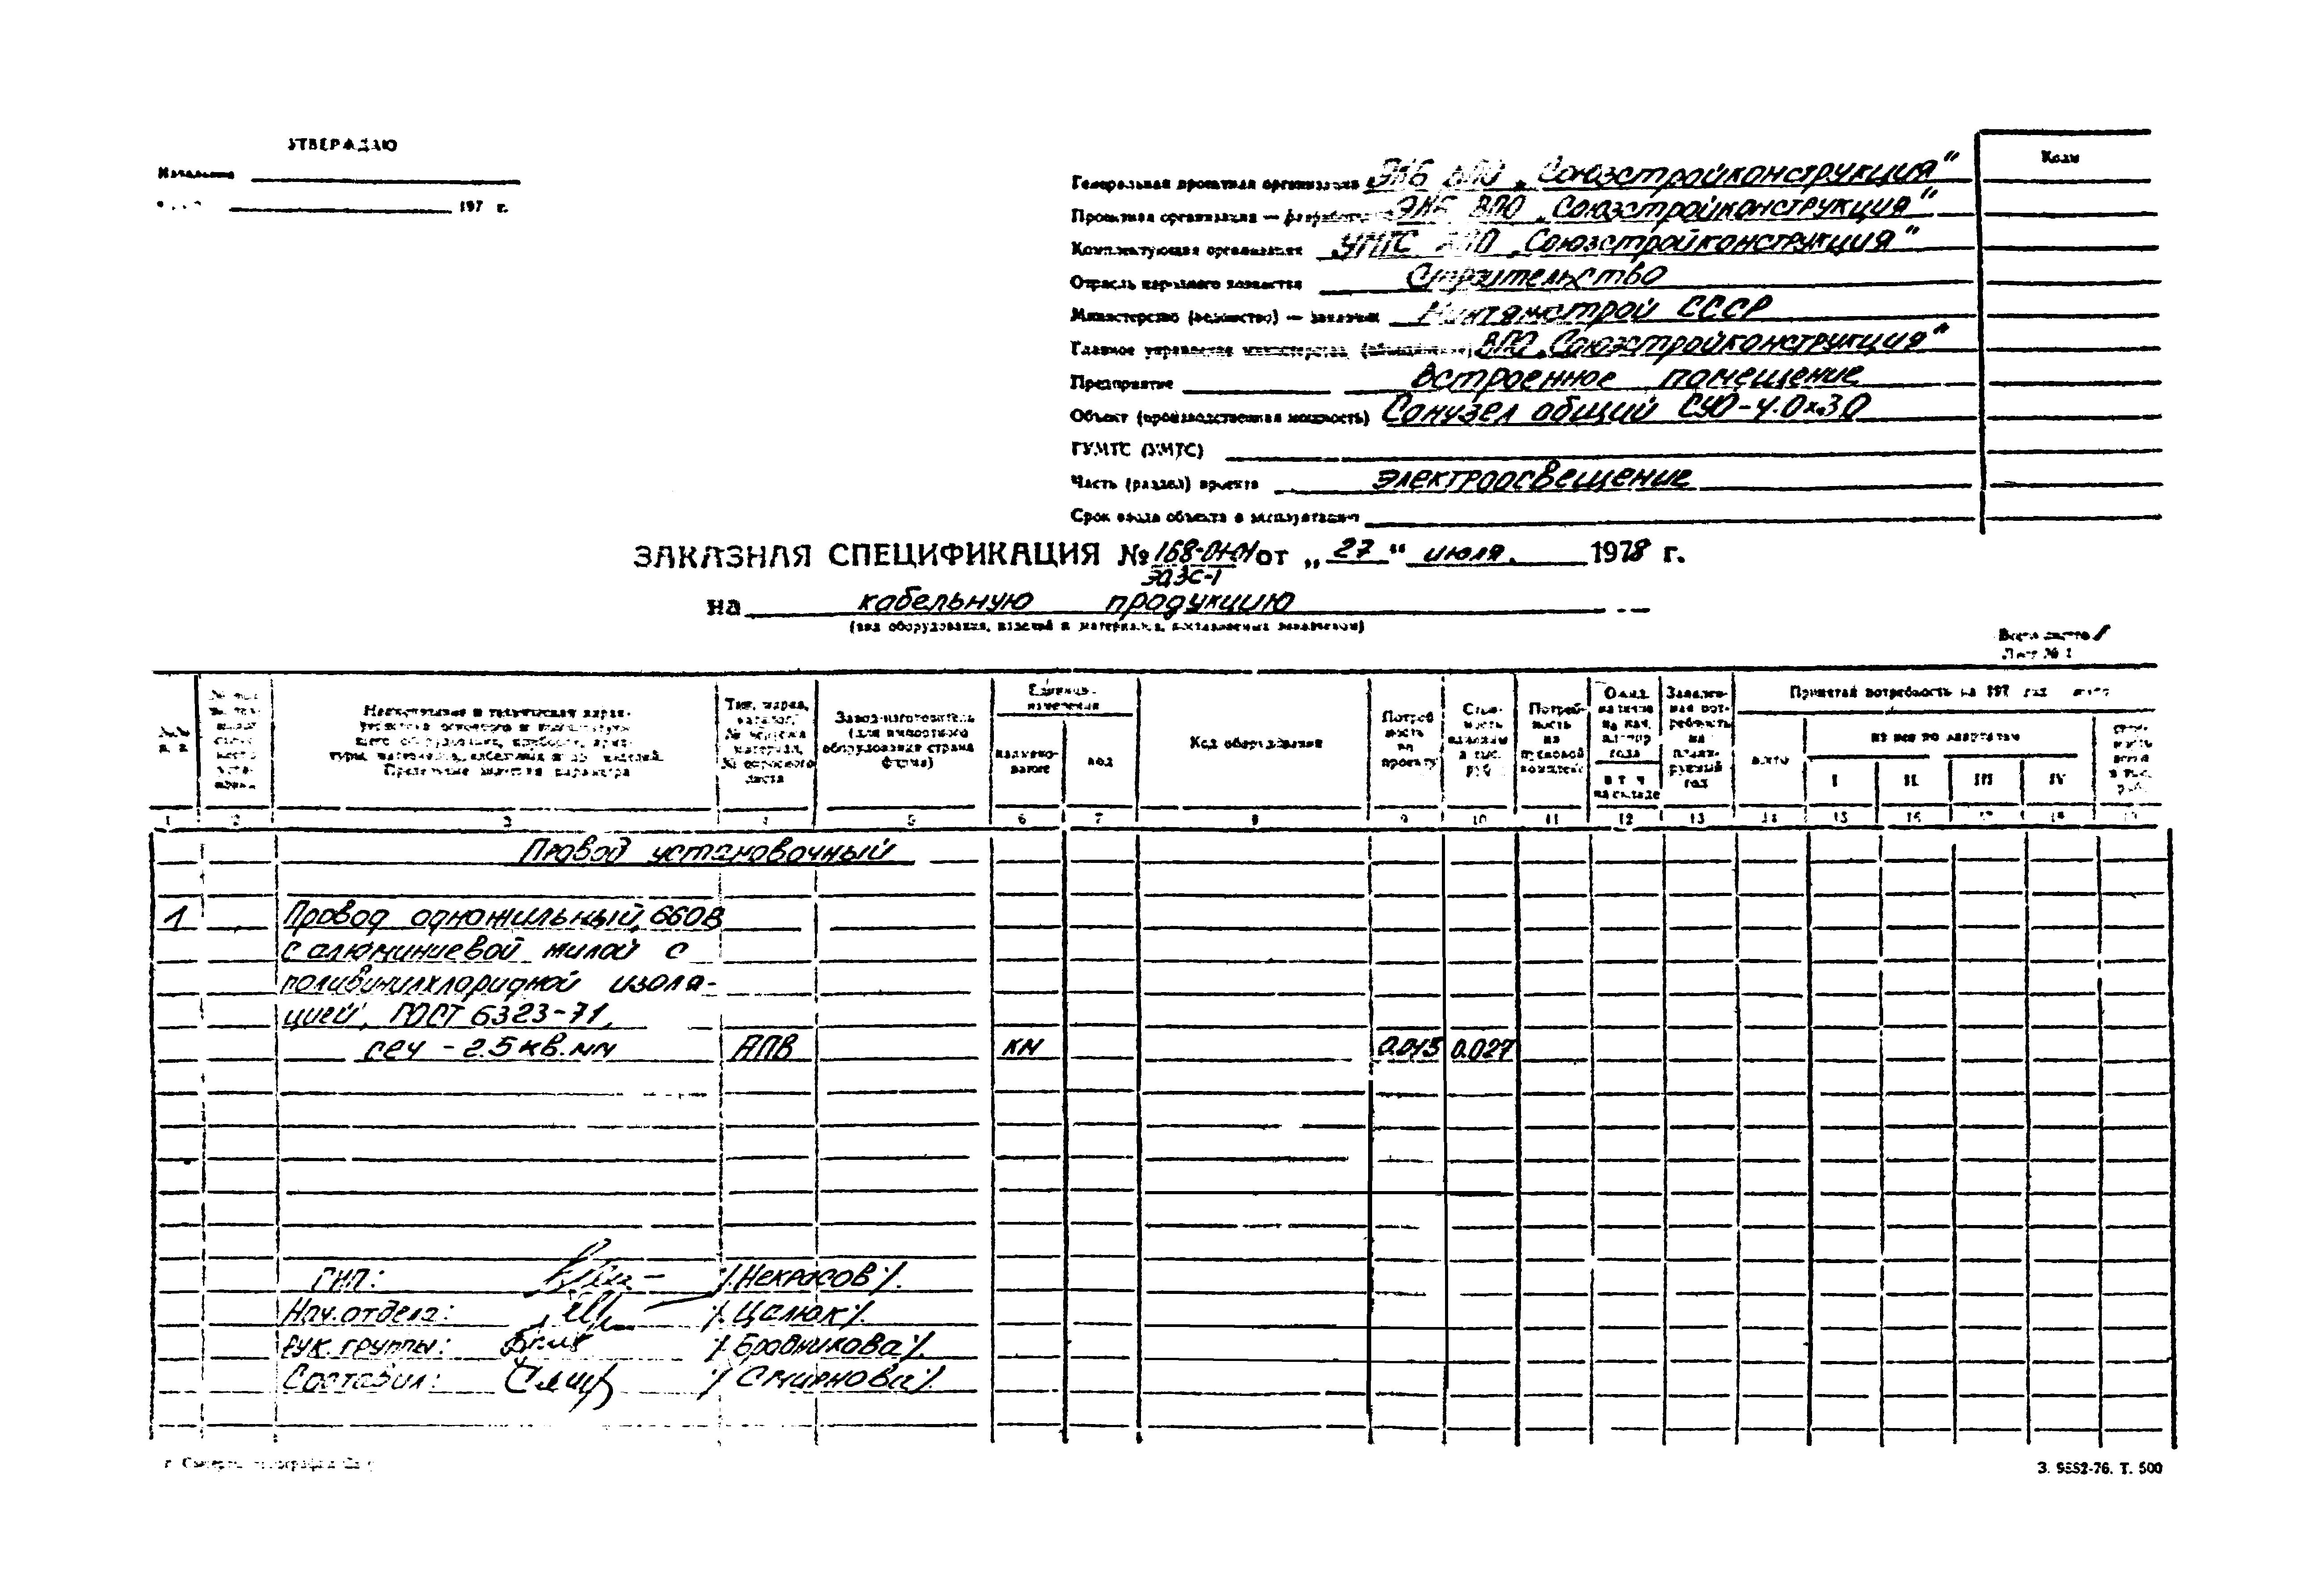 УТВЕРЖДАЮ
Начальник
197 г.
Коды
Генеральная проектная организация ЭКБ ВПО „Союзстройконструкция"
Проектная организация — разработчик ЭКБ ВПО „Союзстройконструкция"
Комплектующая организация УМТС ВПО „Союзстройконструкция"
Отрасль народного хозяйства Строительство
Министерство (ведомство) — заказчик Минтяжстрой СССР
Главное управление министерства (объединение) ВПО „Союзстройконструкция"
Предприятие встроенное помещение
Объект (производственная мощность) Санузел общий СУО-4.0х3.0
ГУМТС (УМТС)
Часть (раздел) проекта электроосвещение
Срок ввода объекта в эксплуатацию
ЗАКАЗНАЯ СПЕЦИФИКАЦИЯ № 168-01-01 от „27" июля 1978 г.
ЭАЗС-1
на кабельную продукцию
(вид оборудования, изделий и материалов, поставляемых заказчиком)
Всего листов 1
Лист № 1
№№ п. п.
Наименование и техническая харак-
теристика основного и комплектую-
щего оборудования, приборов, арма-
туры, материалов, кабельных и др. изделий.
Тип, марка,
каталог,
№ чертежа
материал,
№ опросного
листа
Завод-изготовитель
(для импортного
оборудования страна
фирма)
Единица
измерения
наимено-
вание
код
Код оборудования
Потреб
ность
по
проекту
Стои-
мость
единицы
в тыс.
руб.
Потреб-
ность
на
пусковой
комплекс
Ожид.
наличие
на нач.
планир
года
в т. ч
на складе
Заявлен-
ная пот-
ребность
на
плани-
руемый
год
Принятая потребность на 197 год всего
всего
из нее по кварталам
I II III IV
Стои-
мость
всего
в тыс.
руб.
1 2 3 4 5 6 7 8 9 10 11 12 13 14 15 16 17 18 19
Провод установочный
1 Провод одножильный, 660В
с алюминиевой жилой с
поливинилхлоридной изоля-
цией, ГОСТ 6323-71,
сеч - 2.5 кв.мм АПВ км 0.015 0.027
ГИП: /Некрасов/
Нач.отдела: /Цалюк/
Рук. группы: /Бродникова/
Составил: /Смирнова/
З. 9552-76. Т. 500